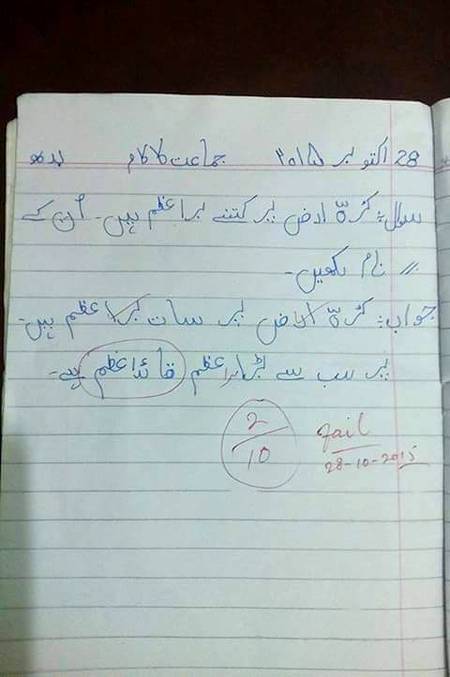 28 اکتوبر ۲۰۱۵ جماعت کا کام بدھ
سوال: کرّہ ارض پر کتنے براعظم ہیں۔ اُن کے
// نام لکھیں۔
جواب: کرّہ الارض پر سات براعظم ہیں۔
پر سب سے بڑا براعظم قائداعظم ہے۔
2/10
fail
28-10-2015